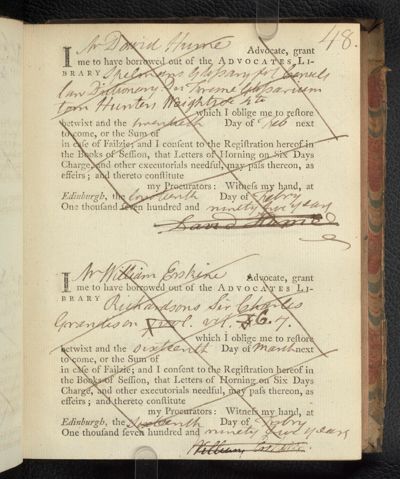 48.
I Mr David Hume Advocate, grant
me to have borrowed out of the ADVOCATES LI-
BRARY Spelmans Glossary fol. Cowels
Law Dictionary Du Fresne Glossarium
tom Hunter Weights &c 4to
which I oblige me to restore
betwixt and the twentieth Day of Feb next
to come, or the Sum of
in case of Failzie; and I consent to the Registration hereof in
the Books of Session, that Letters of Horning on Six Days
Charge, and other executorials needful, may pass thereon, as
effeirs; and thereto constitute
my Procurators: Witness my hand, at
Edinburgh, the Day of Febry
One thousand seven hundred and ninety five years
David Hume
I Mr William Erskine Advocate, grant
me to have borrowed out of the ADVOCATES LI-
BRARY Richardsons Sir Charles
Grandison vol. 6. 7.
which I oblige me to restore
betwixt and the sixteenth Day of March next
to come, or the Sum of
in case of Failzie; and I consent to the Registration hereof in
the Books of Session, that Letters of Horning on Six Days
Charge, and other executorials needful, may pass thereon, as
effeirs; and thereto constitute
my Procurators: Witness my hand, at
Edinburgh, the sixteenth Day of Febry
One thousand seven hundred and ninety five years
William Erskine.